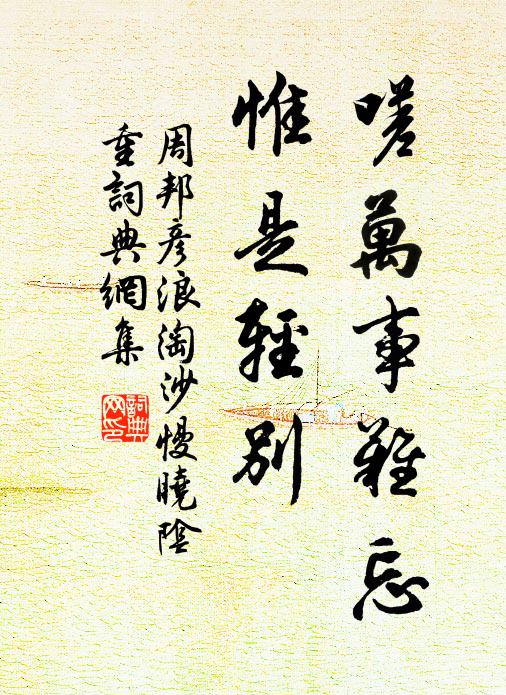 嗟萬事難忘
惟是輕別
周邦彥浪淘沙慢曉陰
重詞典網集
詞典
网印